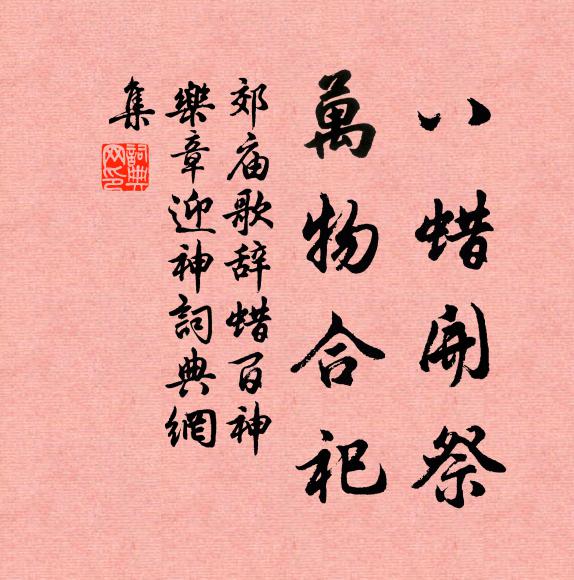 八蜡開祭
萬物合祀
郊庙歌辞蜡百神
樂章迎神詞典網
集
詞典網印